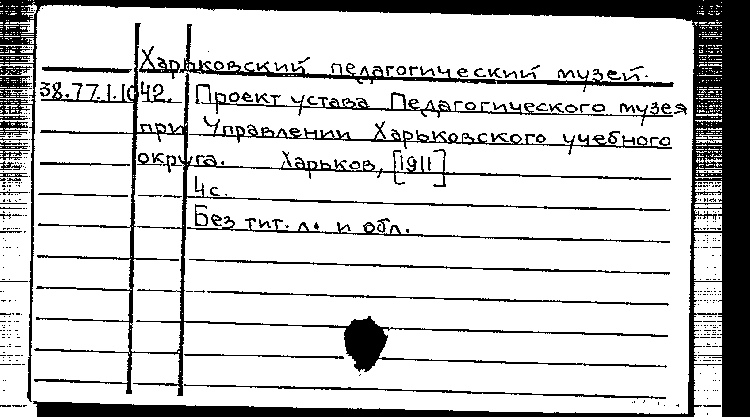 Харьковский педагогический музей.
38.77.1.1042. Проект устава Педагогического музея
при Управлении Харьковского учебного
округа. Харьков, [1911]
4с.
Без тит. л. и обл.